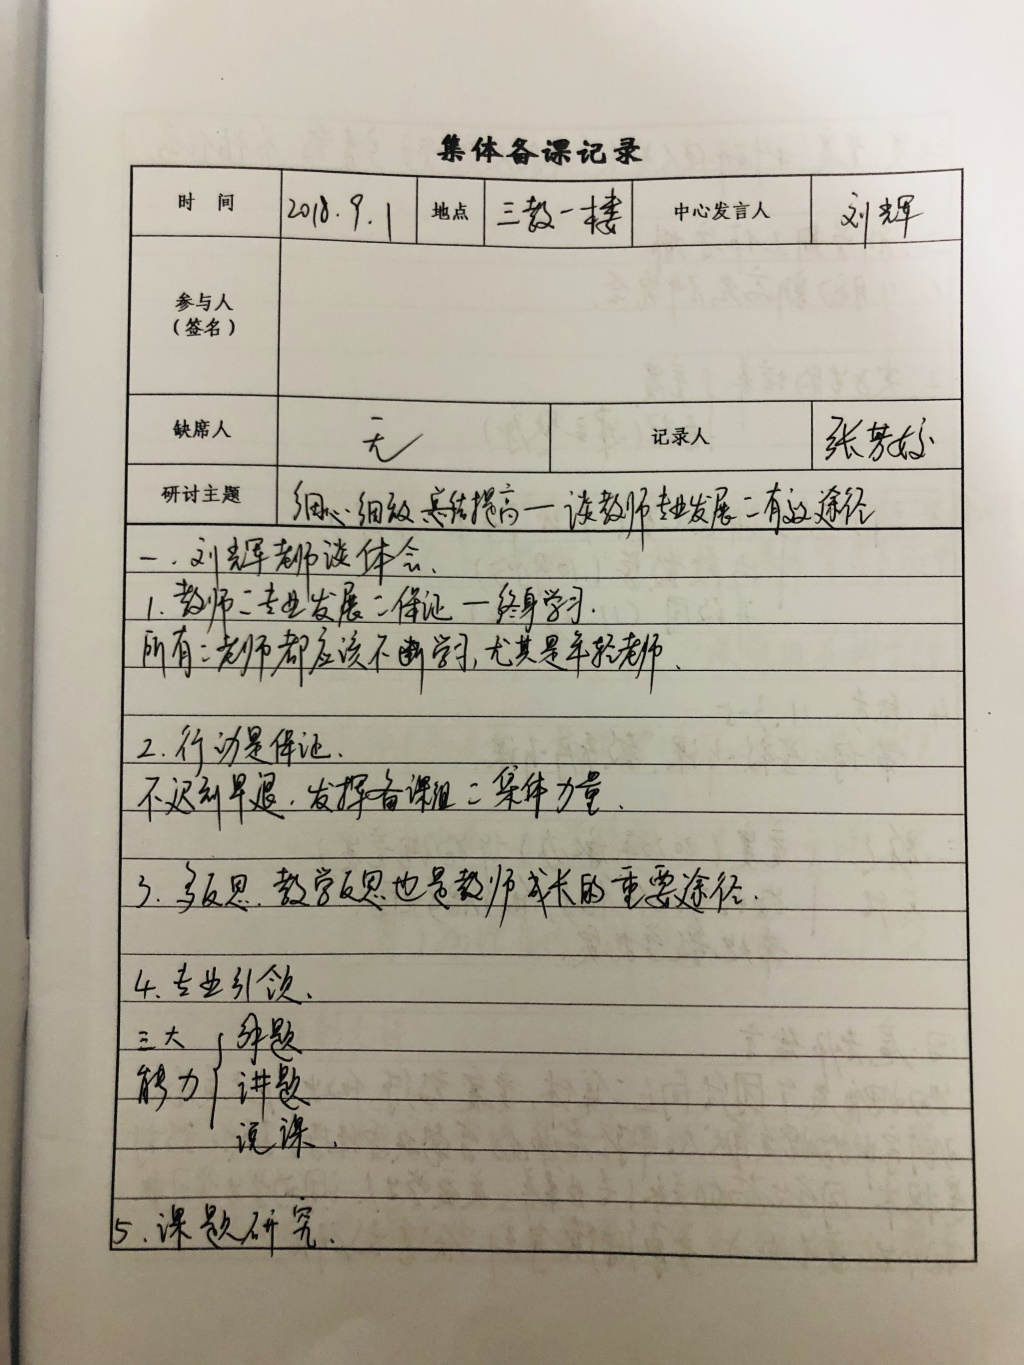 集体备课记录
时 间 2018.9.1 地点 三教一楼 中心发言人 刘辉
参与人
（签名）
缺席人 无 记录人 张芳
研讨主题 细心细致 总结提高一谈教师专业发展二有效途径
一.刘辉老师谈体会.
1.教师二专业发展二保证一终身学习.
所有二老师都应该不断学习,尤其是年轻老师.
2.行动是保证.
不迟到早退.发挥备课组二集体力量.
3.多反思.教学反思也是教师成长的重要途径.
4.专业引领.
三大 { 命题
能力 { 讲题
说课.
5.课题研究.